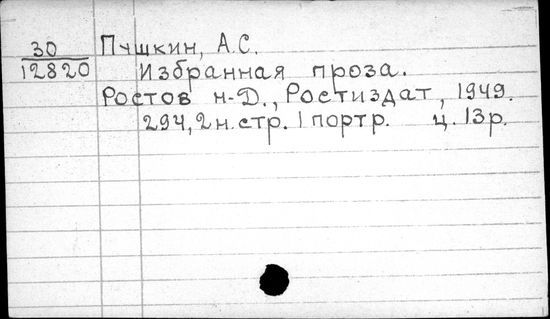 30 Пушкин, А.С.
12820 Избранная проза.
Ростов н-Д., Ростиздат, 1949.
294, 2 н. стр. 1 портр. ц. 13 р.